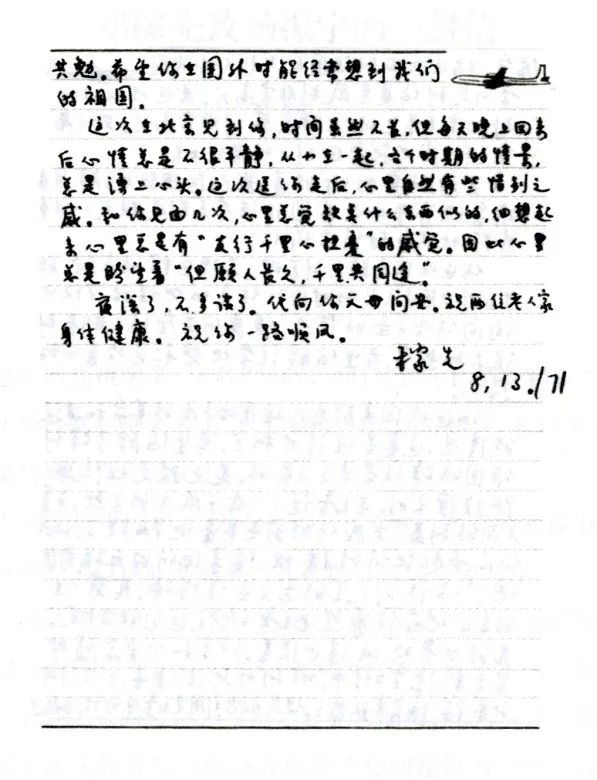 共勉。希望你在国外时能经常想到我们
的祖国。
这次在北京见到你,时间虽然不长,但每天晚上回来
后心情总是不很平静,从小在一起,各个时期的情景,
总是涌上心头。这次送你走后,心里自然有些惜别之
感。和你见面几次,心里总觉缺点什么东西似的,细想起
来心里总是有"友行千里心担憂"的感觉。因此心里
总是盼望着"但愿人长久,千里共同途"。
夜深了,不多谈了。代向你父母问安。祝两位老人家
身体健康。祝你一路顺风。
稼先
8,13./71